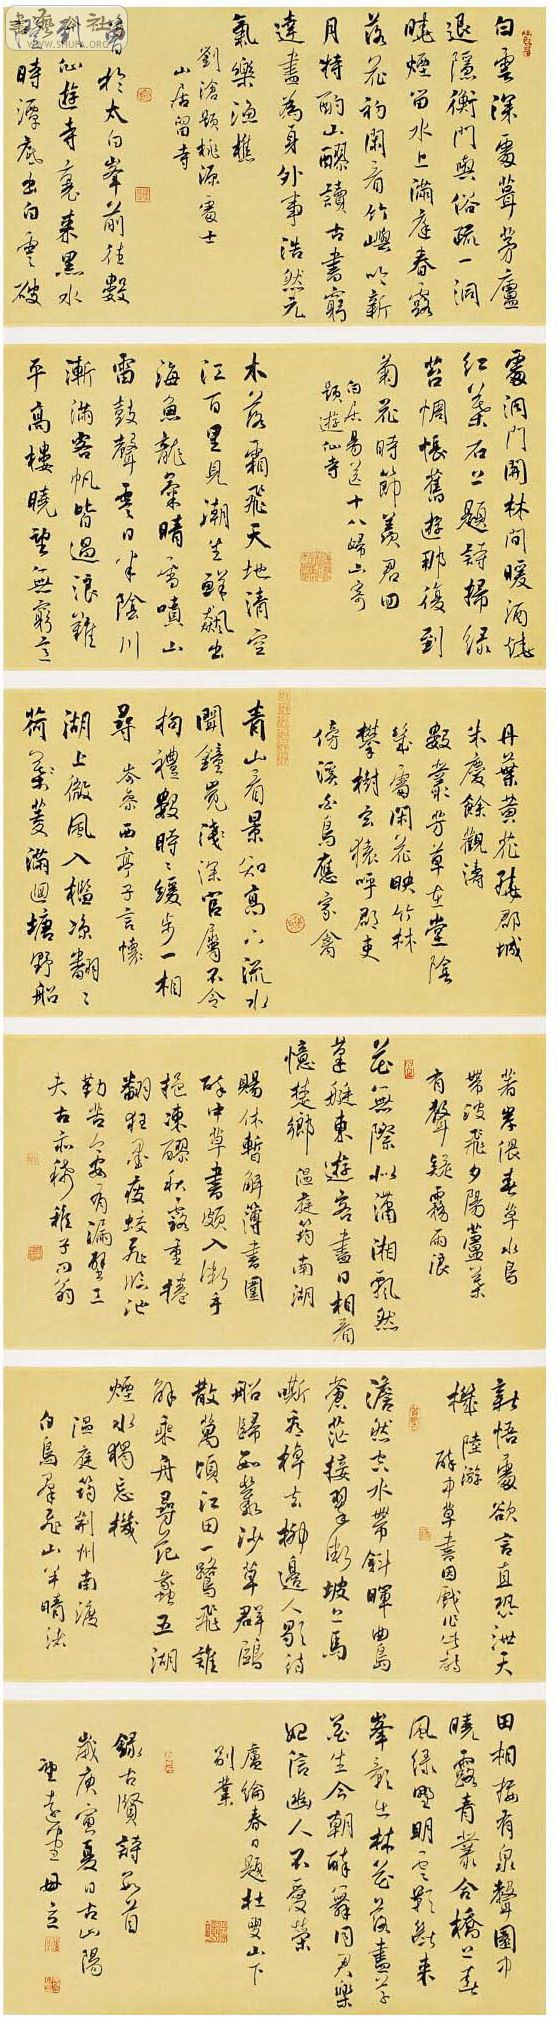 白雲深處葺茅廬
退隱衡門與俗疏一洞
曉煙留水上滿庭春露
落花初閑看竹嶼吟新
月特酌山醪讀古書窮
達盡為身外事浩然元
氣樂漁樵
劉滄題桃源處士
山居留寺
曾於太白峯前住數
到仙遊寺裏來黑水
澄時潭底出白雲破
處洞門開林間暖酒燒
紅葉石上題詩掃綠
苔惆悵舊遊那復到
菊花時節羨君回
白居易送十八歸山寄
題遊仙寺
木落霜飛天地清空
江百里見潮生鮮飆出
海魚龍氣晴雪噴山
雷鼓聲雲日半陰川
漸滿客帆皆過浪難
平高樓曉望無窮意
丹葉黃花繞郡城
朱慶餘觀濤
數叢芳草在堂陰
幾處閑花映竹林
攀樹玄猿呼郡吏
傍溪白鳥應家禽
青山看景知高下流水
聞鐘覺淺深官屬不令
拘禮數時時緩步一相
尋 岑參西亭子言懷
湖上微風入檻涼翻翻
荷葉菱滿回塘野船
著岸偎春草水鳥
帶波飛夕陽蘆葉
有聲疑霧雨浪
花無際似瀟湘飄然
篷艇東遊客盡日相看
憶楚鄉 溫庭筠南湖
賜休暫解簿書圍
醉中草書頗入微手
挹凍醪秋露重捲
翻狂墨瘦蛟飛臨池
勤苦今安有漏壁工
夫古亦稀稚子問翁
新悟處欲言直恐泄天
機 陸游
醉中草書因戲作此詩
澹然空水帶斜暉曲島
蒼茫接翠微坡上馬
嘶看棹去柳邊人歇待
船歸數叢沙草群鷗
散萬頃江田一鷺飛誰
解乘舟尋范蠡五湖
煙水獨忘機
溫庭筠荊州南渡
白鳥羣飛山半晴渚
田相接有泉聲園中
曉露青叢合橋上春
風綠野明雲影斷來
峯影出林花落盡草
花生今朝醉舞同君樂
始信幽人不愛榮
盧綸春日題杜叟山下
別業
錄古賢詩數首
歲庚寅夏日古山陽
書藝公社
WWW.SHUFA.ORG